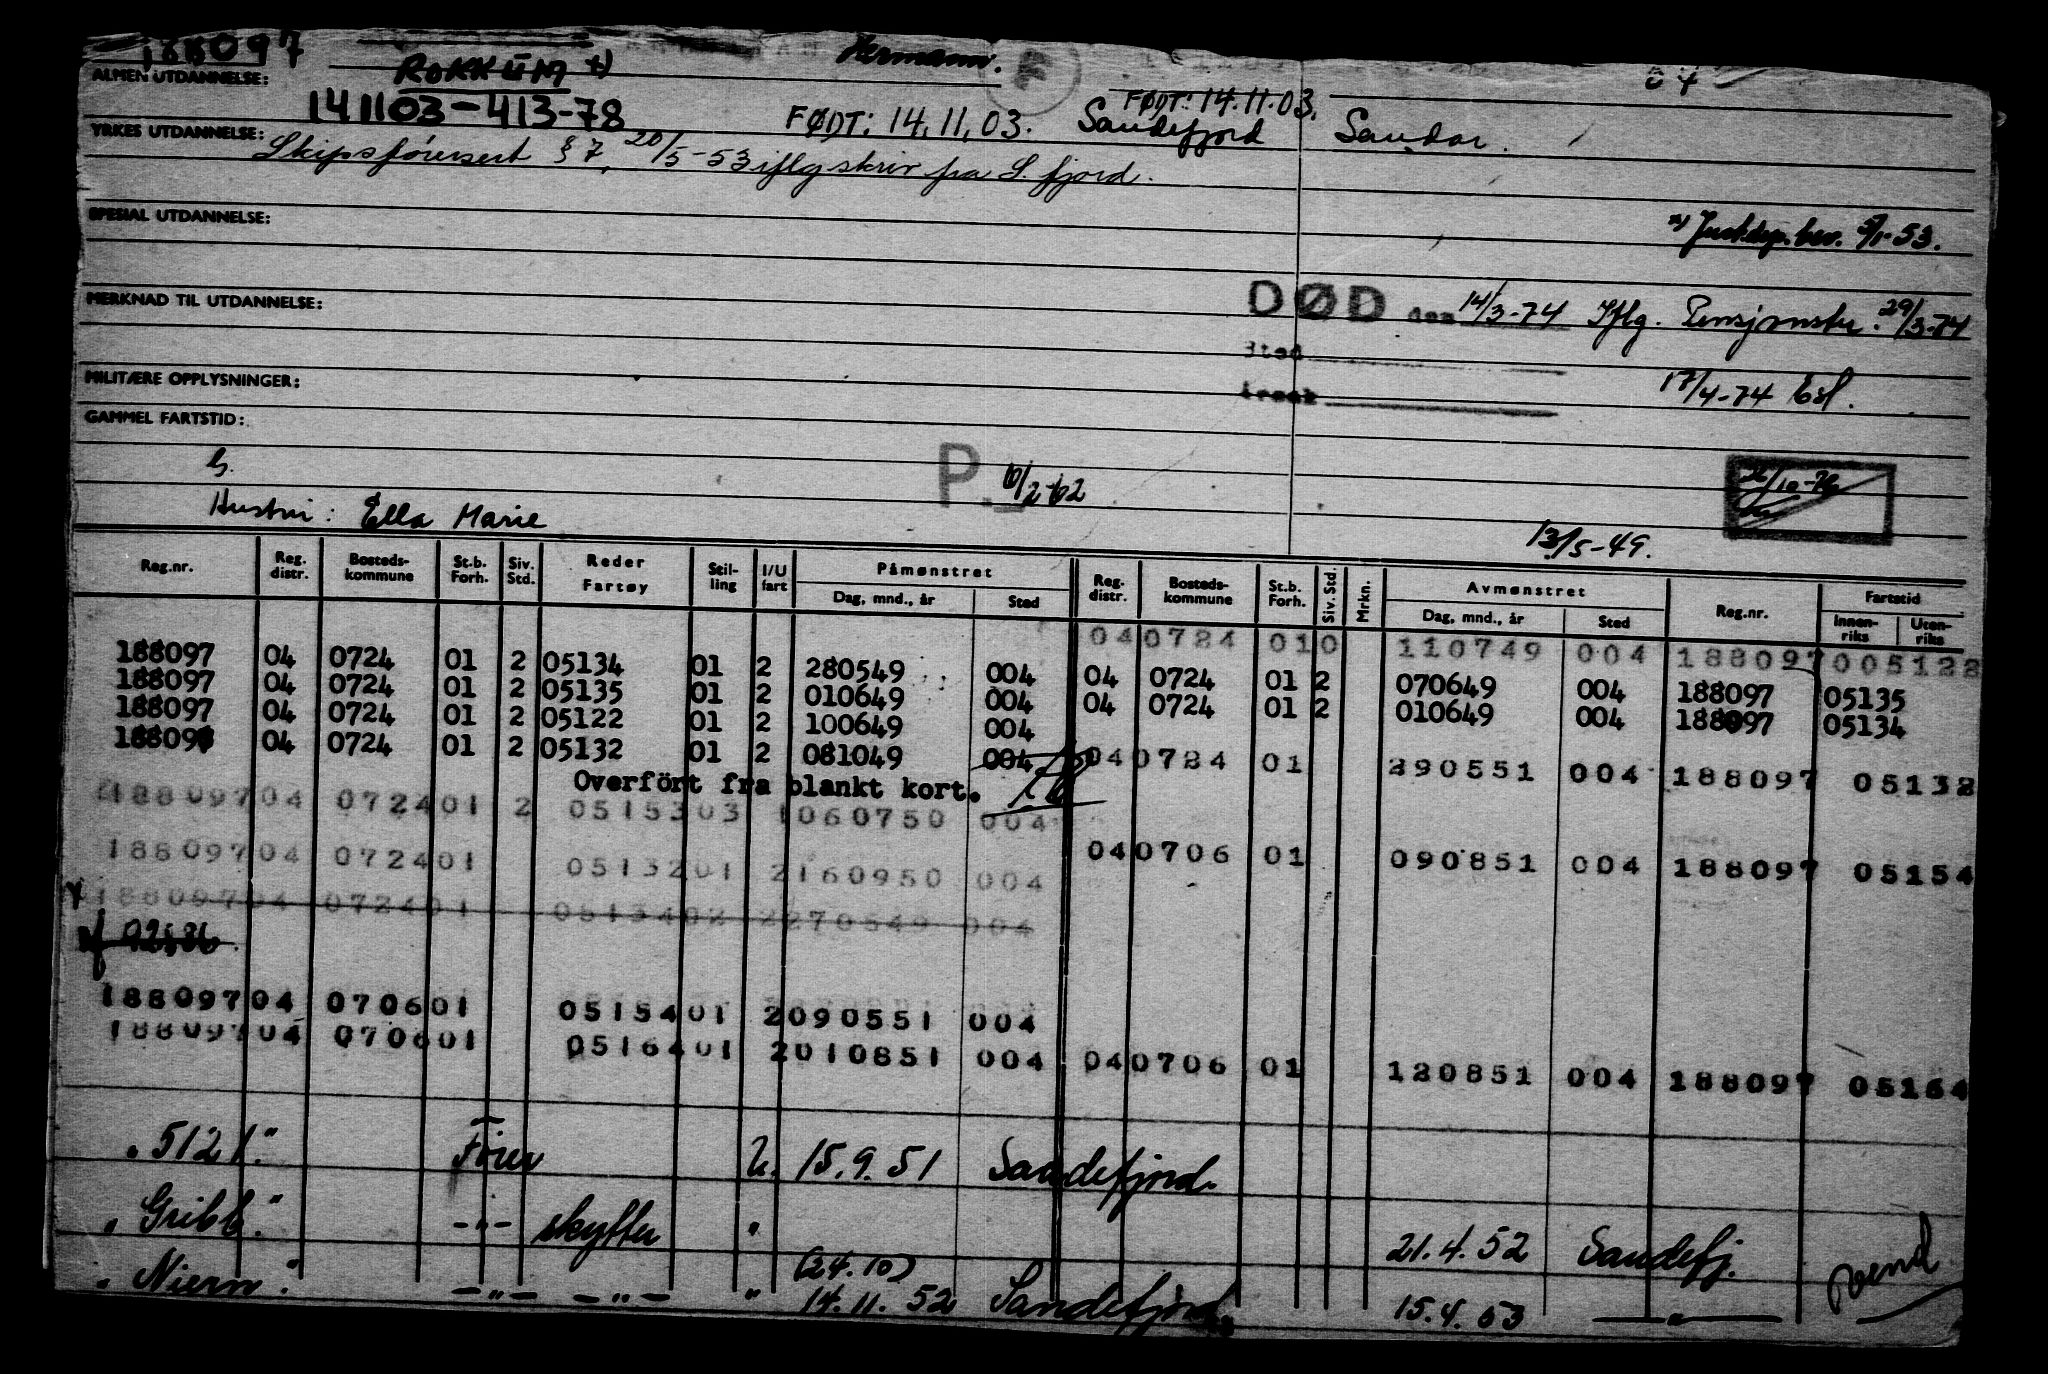 188097
ROKKUM x) Hermann.
ALMEN UTDANNELSE:
141103-413-78 FØDT: 14.11.03. Sandefjord FØDT: 14.11.03. Sandar.
YRKES UTDANNELSE: Skipsförersert § 7, 20/5-53 iflg skriv fra S. fjord.
SPESIAL UTDANNELSE:
x) Just.dep. bev. 5/1-53.
MERKNAD TIL UTDANNELSE:
DØD den 14/3-74 Iflg. Pensjonstr. 29/3-74
Sted
MILITÆRE OPPLYSNINGER: 17/4-74
GAMMEL FARTSTID:
G. P. 10/2-62
Hustru: Ella Marie
13/5-49.
Reg.nr. Reg. distr. Bosteds-kommune St.b. Forh. Siv. Std. Reder Fartøy Stil-ling I/U fart Påmønstret Dag, mnd., år Sted Reg. distr. Bosteds-kommune St.b. Forh. Siv. Std. Mrkn. Avmønstret Dag, mnd., år Sted Reg.nr. Fartstid Innen-riks Uten-riks
040724 010 110749 004 188097 005122
188097 04 0724 01 2 05134 01 2 280549 004 04 0724 01 2 070649 004 188097 05135
188097 04 0724 01 2 05135 01 2 010649 004 04 0724 01 2 010649 004 188097 05134
188097 04 0724 01 2 05122 01 2 100649 004
188097 04 0724 01 2 05132 01 2 081049 004 040724 01 290551 004 188097 05132
Overfört fra blankt kort.
188097 04 0724 01 2 05153 03 1 060750 004
188097 04 0724 01 05132 01 2 160950 004 040706 01 090851 004 188097 05154
188097 04 0724 01 05134 02 2 270549 004
188097 04 0706 01 05154 01 2 090551 004
188097 04 0706 01 05164 01 2 010851 004 040706 01 120851 004 188097 05164
"5121." Förer U. 15.9.51 Sandefjord.
"Gribb." -"- skytter " 21.4.52 Sandefj.
(24.10)
"Niern". -"- -"- " 14.11.52 Sandefjord. 15.4.53 -"-
vend